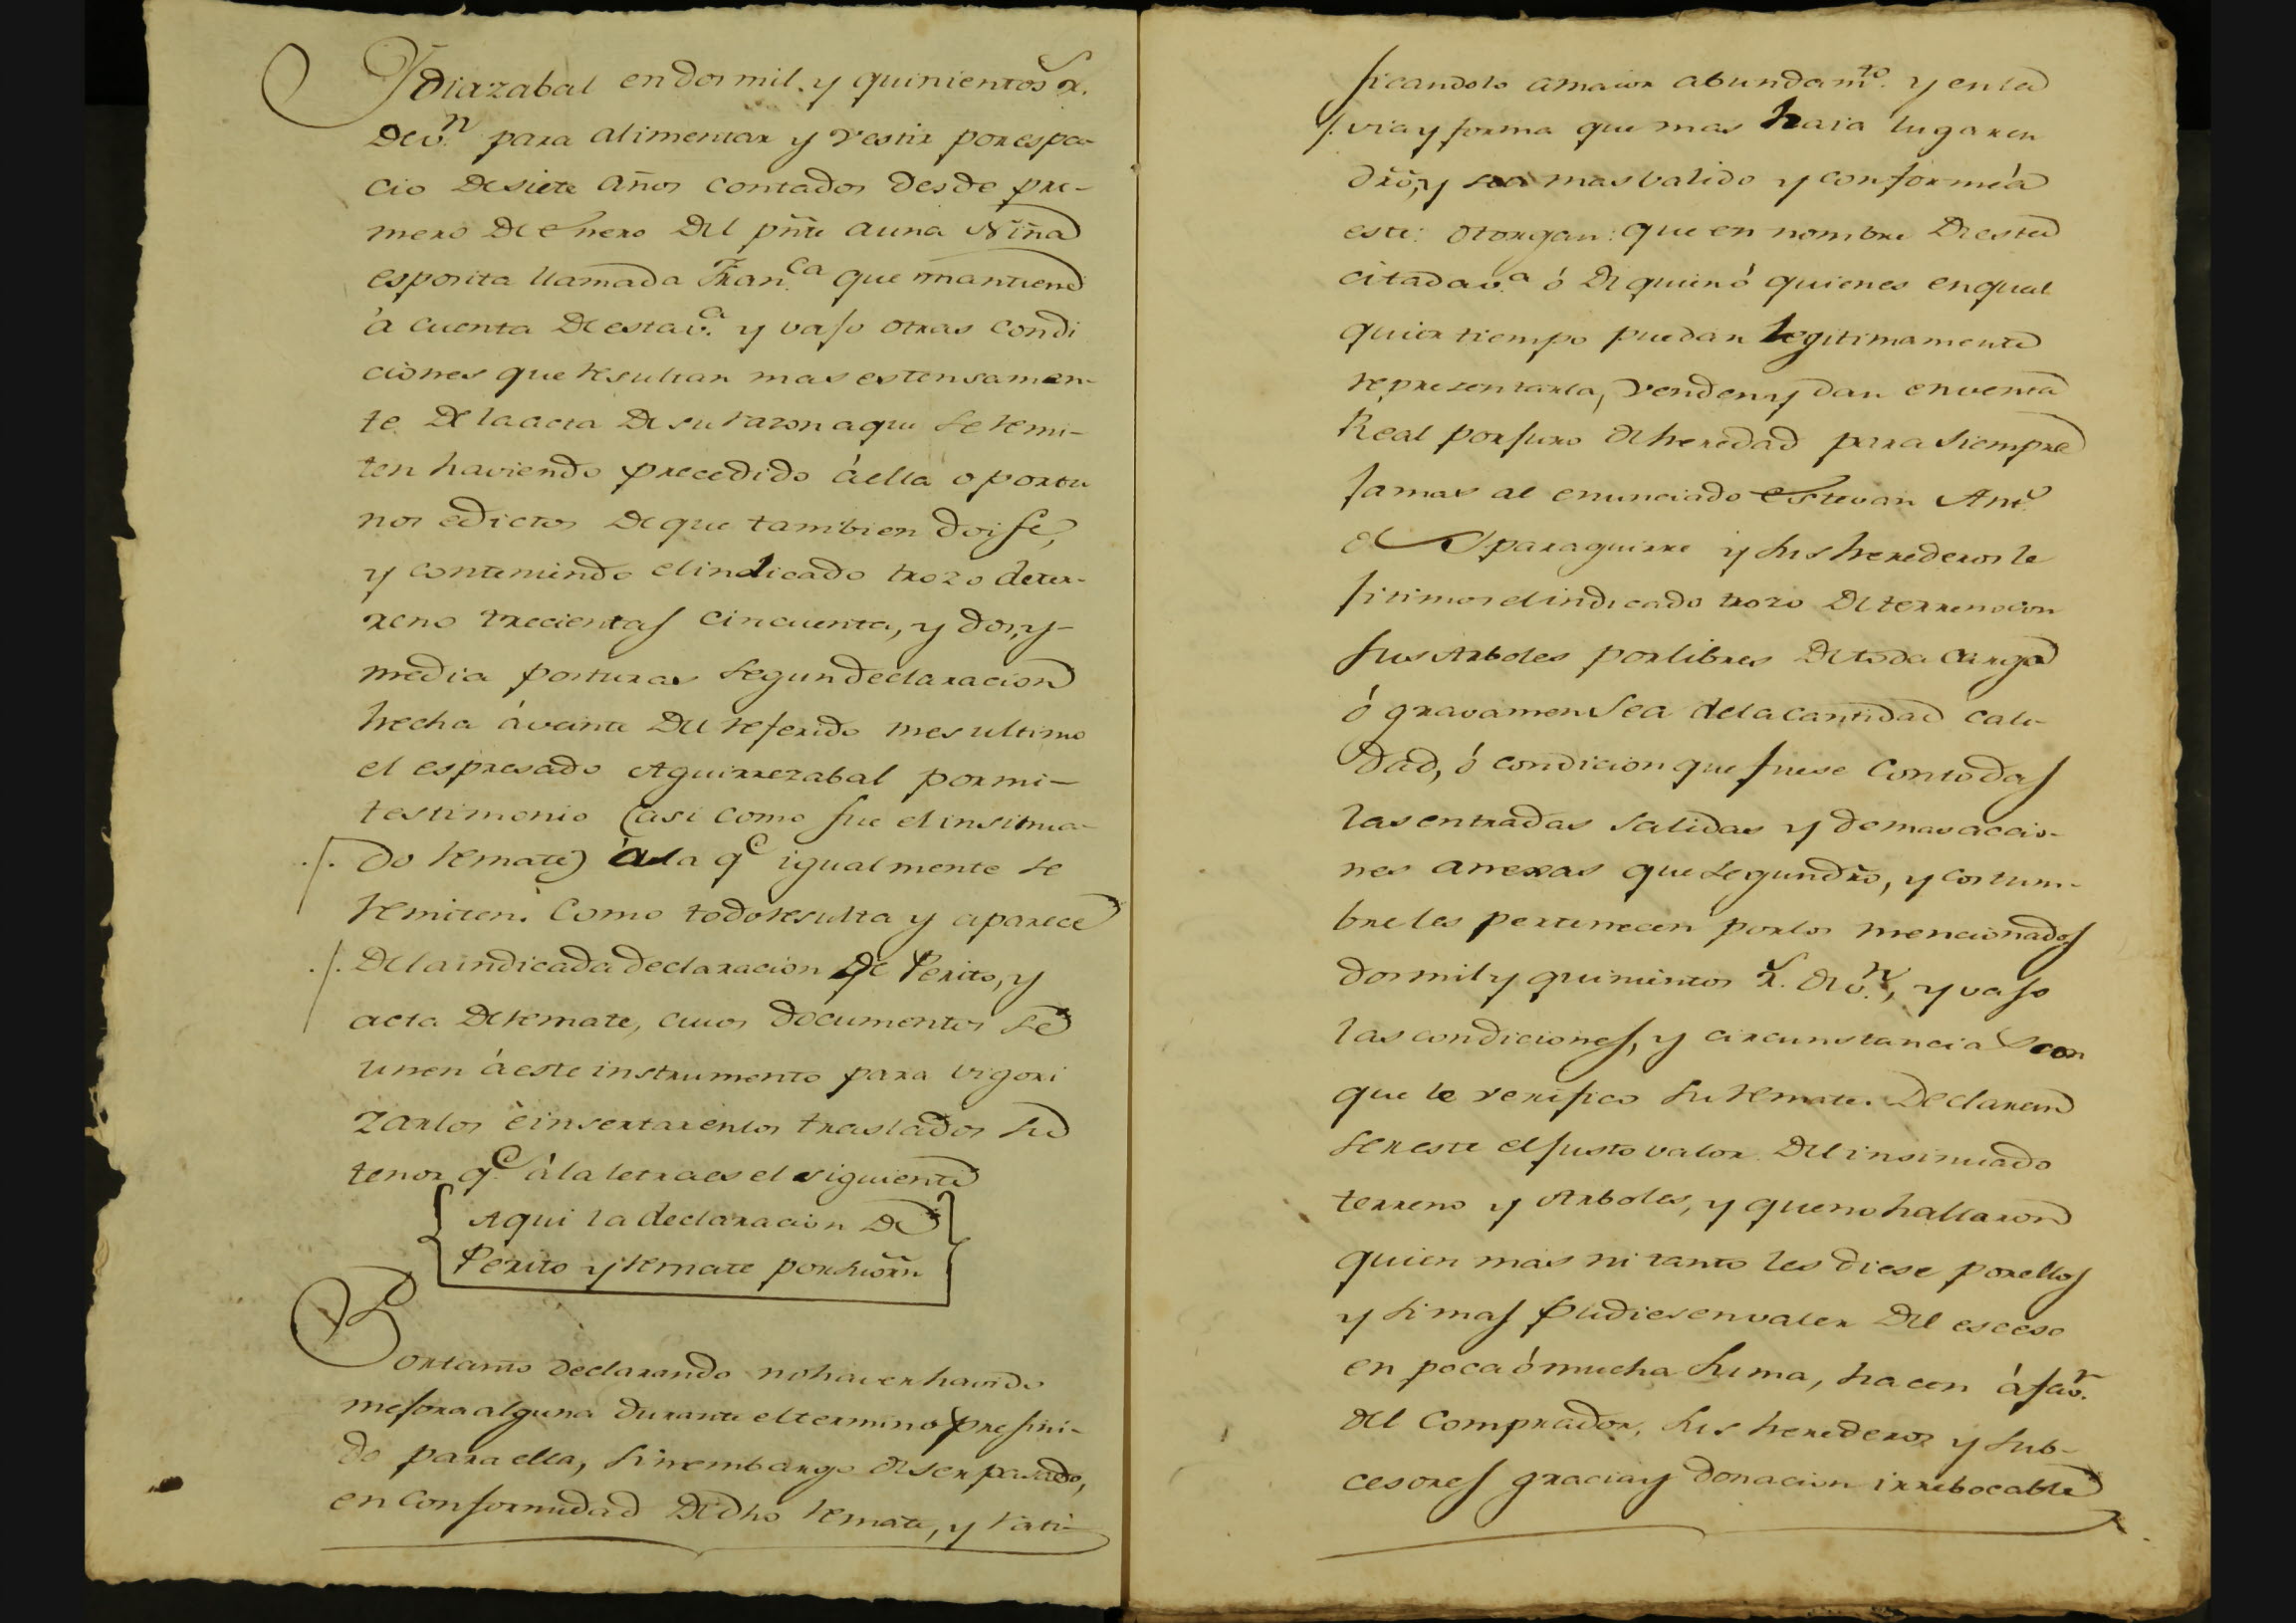 Ydiazabal en dos mil, y quinientos r.s
de v.n para alimentar y vestir por espa-
cio de siete años contados desde pri-
mero de Enero del pñte a una Niña
esposita llamada Fran.ca que mantiene
á cuenta de esta v.a y vajo otras condi
ciones que resultan mas estensamen-
te de la acta de su razon a que se remi-
ten haviendo precedido á ella oportu
nos edictos de que tambien doi fe,
y conteniendo el indicado trozo de ter-
reno trecientas cincuenta, y dos, y-
media posturas segun declaracion
hecha á veinte del referido mes ultimo
el espresado Aguirrezabal por mi-
testimonio (asi como fue el insinua-
./. do remate) á la q.e igualmente se
remiten: Como todo resulta y aparece
./. de la indicada declaracion de Perito, y
acta de remate, cuios documentos se
unen á este instrumento para vigori
zarlos è insertar en los traslados su
tenor q.e á la letra es el siguiente
Aqui la declaracion de
Perito y remate por su orñ
Portanto declarando no haver havido
mejora alguna durante el termino prefini-
do para ella, sin embargo de ser pasado,
en conformidad de dho remate, y rati-
ficandolo a maior abundam.to y en la
/. via y forma que mas haia lugar en
dro, y sea mas valido y conforme á
este: otorgan: que en nombre de esta
citada v.a ó de quien ó quienes en qual
quier tiempo puedan legitimamente
representarla, venden y dan en venta
Real por juro de heredad para siempre
jamas al enunciado Estevan Ant.o
de Yparaguirre y sus herederos le
jitimos el indicado trozo de terreno con
sus Arboles por libres de toda carga
ó gravamen sea de la cantidad cali-
dad, ó condicion que fuese con todas
las entradas salidas y demas accio-
nes anexas que segun dro, y costum-
bre les pertenecen por los mencionados
dos mil y quinientos r.s de v.n, y vajo
las condiciones, y circunstancias con
que le verifico su remate. Declaran
ser este el justo valor del insinuado
terreno y Arboles, y que no hallaron
quien mas ni tanto les diese por ellos
y si mas pudiesen valer del esceso
en poca ó mucha suma, hacen á fav.r
del Comprador, sus herederos y sub-
cesores gracia y donacion irrebocable